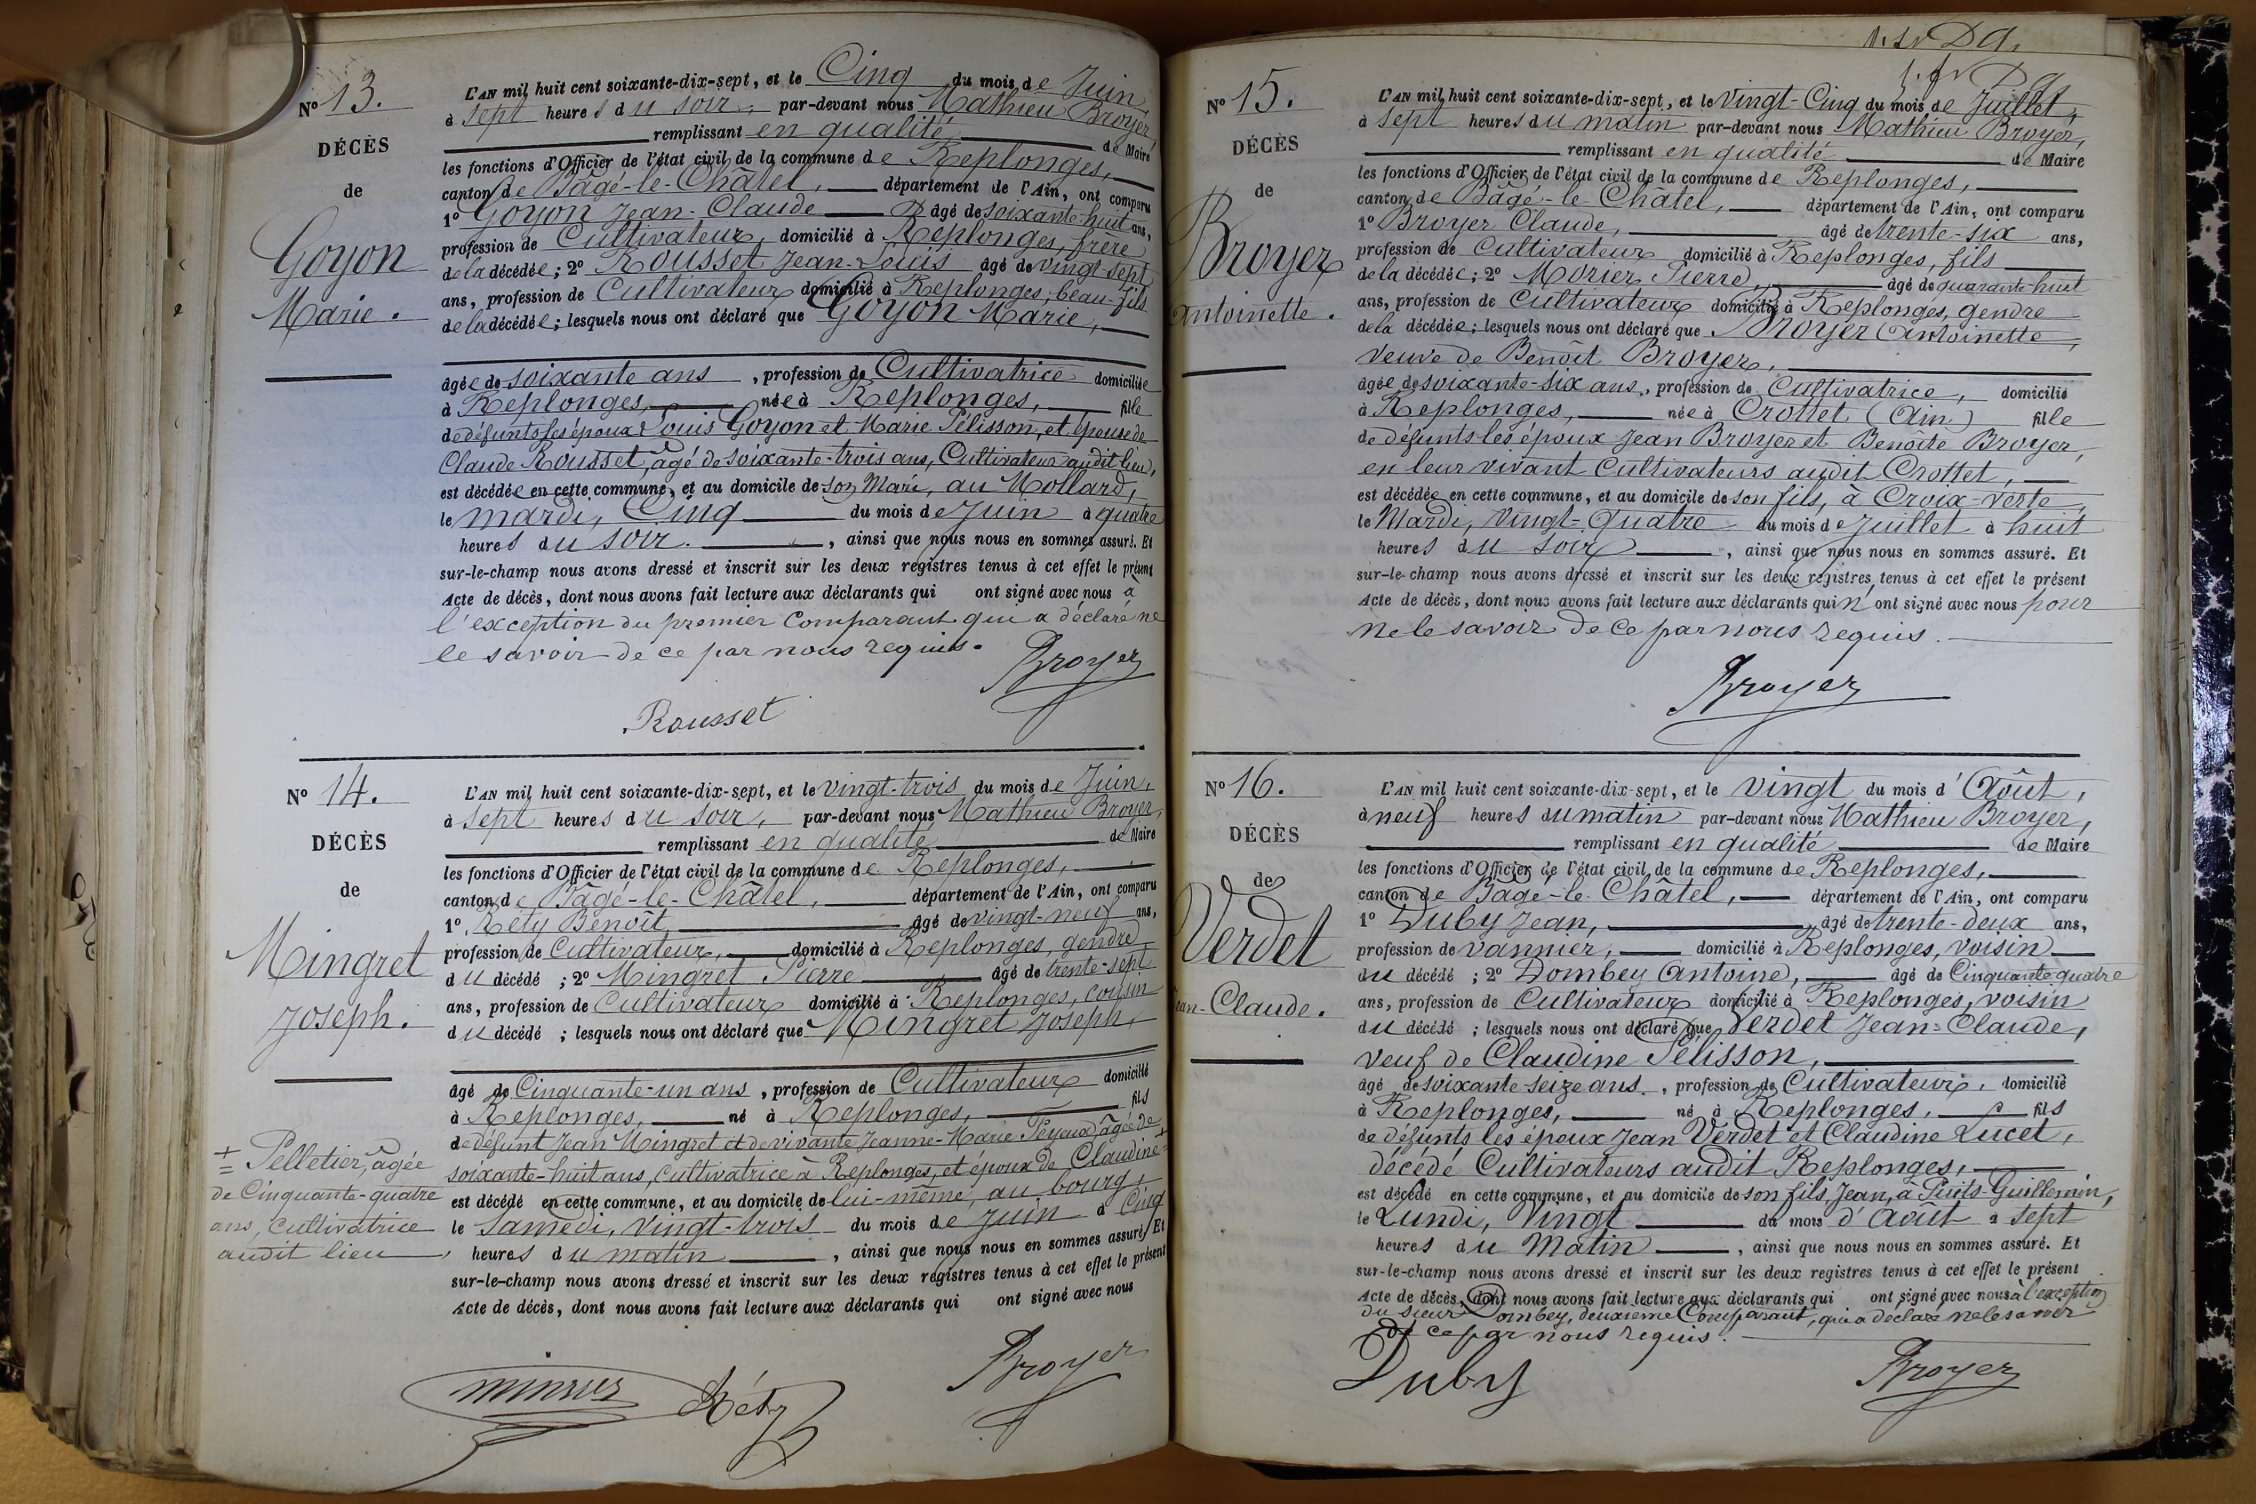 N° 13.
DÉCÈS
de
Goyon
Marie.
L'AN mil huit cent soixante-dix-sept, et le Cinq du mois de Juin,
à sept heures du soir, par-devant nous Mathieu Broyer,
remplissant en qualité de Maire
les fonctions d'Officier de l'état civil de la commune de Replonges,
canton de Bâgé-le-Châtel, département de l'Ain, ont comparu
1° Goyon Jean-Claude âgé de soixante-huit ans,
profession de Cultivateur, domicilié à Replonges, frère
de la décédée; 2° Rousset Jean-Louis âgé de vingt-sept
ans, profession de Cultivateur domicilié à Replonges, beau-fils
de la décédée; lesquels nous ont déclaré que Goyon Marie,
âgée de soixante ans, profession de Cultivatrice domiciliée
à Replonges, née à Replonges, fille
de défunts les époux Louis Goyon et Marie Pélisson, et épouse de
Claude Rousset, âgé de soixante-trois ans, Cultivateur audit lieu,
est décédée en cette commune, et au domicile de son Mari, au Mollard,
le mardi, Cinq du mois de Juin à quatre
heures du soir, ainsi que nous nous en sommes assuré. Et
sur-le-champ nous avons dressé et inscrit sur les deux registres tenus à cet effet le présent
Acte de décès, dont nous avons fait lecture aux déclarants qui ont signé avec nous à
l'exception du premier Comparant qui a déclaré ne
le savoir de ce par nous requis.
Broyer
Rousset
N° 14.
DÉCÈS
de
Mingret
Joseph.
L'AN mil huit cent soixante-dix-sept, et le vingt-trois du mois de Juin,
à sept heures du soir, par-devant nous Mathieu Broyer,
remplissant en qualité de Maire
les fonctions d'Officier de l'état civil de la commune de Replonges,
canton de Bâgé-le-Châtel, département de l'Ain, ont comparu
1° Réty Benoît âgé de vingt-neuf ans,
profession de Cultivateur, domicilié à Replonges, gendre
du décédé; 2° Mingret Pierre âgé de trente-sept
ans, profession de Cultivateur domicilié à Replonges, cousin
du décédé; lesquels nous ont déclaré que Mingret Joseph,
âgé de Cinquante-un ans, profession de Cultivateur domicilié
à Replonges, né à Replonges, fils
de défunt Jean Mingret et de vivante Jeanne-Marie Feyeux, âgée de
soixante-huit ans, cultivatrice à Replonges, et époux de Claudine
+ Pelletier, âgée
de Cinquante-quatre
ans, cultivatrice
audit lieu,
est décédé en cette commune, et au domicile de lui-même, au bourg,
le samedi, vingt-trois du mois de Juin à Cinq
heures du matin, ainsi que nous nous en sommes assuré. Et
sur-le-champ nous avons dressé et inscrit sur les deux registres tenus à cet effet le présent
Acte de décès, dont nous avons fait lecture aux déclarants qui ont signé avec nous
Broyer
Réty
N° 15.
DÉCÈS
de
Broyer
Antoinette.
L'AN mil huit cent soixante-dix-sept, et le vingt-Cinq du mois de Juillet,
à sept heures du matin par-devant nous Mathieu Broyer,
remplissant en qualité de Maire
les fonctions d'Officier de l'état civil de la commune de Replonges,
canton de Bâgé-le-Châtel, département de l'Ain, ont comparu
1° Broyer Claude, âgé de trente-six ans,
profession de Cultivateur domicilié à Replonges, fils
de la décédée; 2° Morier Pierre, âgé de quarante-huit
ans, profession de Cultivateur domicilié à Replonges, gendre
de la décédée; lesquels nous ont déclaré que Broyer Antoinette,
veuve de Benoît Broyer,
âgée de soixante-six ans, profession de Cultivatrice, domicilié
à Replonges, née à Crottet (Ain) fille
de défunts les époux Jean Broyer et Benoîte Broyer,
en leur vivant Cultivateurs audit Crottet,
est décédée en cette commune, et au domicile de son fils, à Croix-verte,
le Mardi, vingt-Quatre du mois de Juillet à huit
heures du soir, ainsi que nous nous en sommes assuré. Et
sur-le-champ nous avons dressé et inscrit sur les deux registres tenus à cet effet le présent
Acte de décès, dont nous avons fait lecture aux déclarants qui n'ont signé avec nous pour
ne le savoir de ce par nous requis.
Broyer
N° 16.
DÉCÈS
de
Verdet
Jean-Claude.
L'AN mil huit cent soixante-dix-sept, et le vingt du mois d'Août,
à neuf heures du matin par-devant nous Mathieu Broyer,
remplissant en qualité de Maire
les fonctions d'Officier de l'état civil de la commune de Replonges,
canton de Bâgé-le-Châtel, département de l'Ain, ont comparu
1° Duby Jean, âgé de trente-deux ans,
profession de vannier, domicilié à Replonges, voisin
du décédé; 2° Dombey Antoine, âgé de Cinquante-quatre
ans, profession de Cultivateur domicilié à Replonges, voisin
du décédé; lesquels nous ont déclaré que Verdet Jean-Claude,
veuf de Claudine Pélisson,
âgé de soixante-seize ans, profession de Cultivateur, domicilié
à Replonges, né à Replonges, fils
de défunts les époux Jean Verdet et Claudine Lucet,
décédé Cultivateurs audit Replonges,
est décédé en cette commune, et au domicile de son fils, Jean, à Puits-Guillemin,
le Lundi, Vingt du mois d'Août à sept
heures du Matin, ainsi que nous nous en sommes assuré. Et
sur-le-champ nous avons dressé et inscrit sur les deux registres tenus à cet effet le présent
Acte de décès, dont nous avons fait lecture aux déclarants qui ont signé avec nous à l'exception
du sieur Dombey, deuxième Comparant, qui a déclaré ne le savoir
de ce par nous requis.
Duby
Broyer